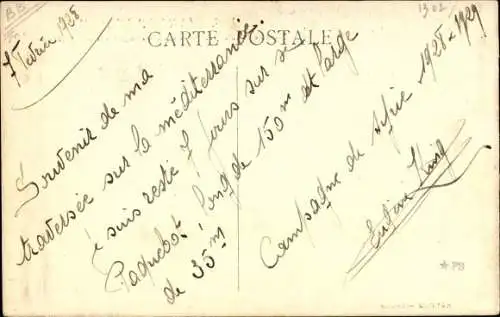 BB
1302
7 Février 1928
CARTE POSTALE
Souvenir de ma
traversée sur la méditerranée.
je suis resté 7 jours sur se
Paquebot long de 150m et large
de 35m
Campagne de Syrie 1928 x 1929
PB